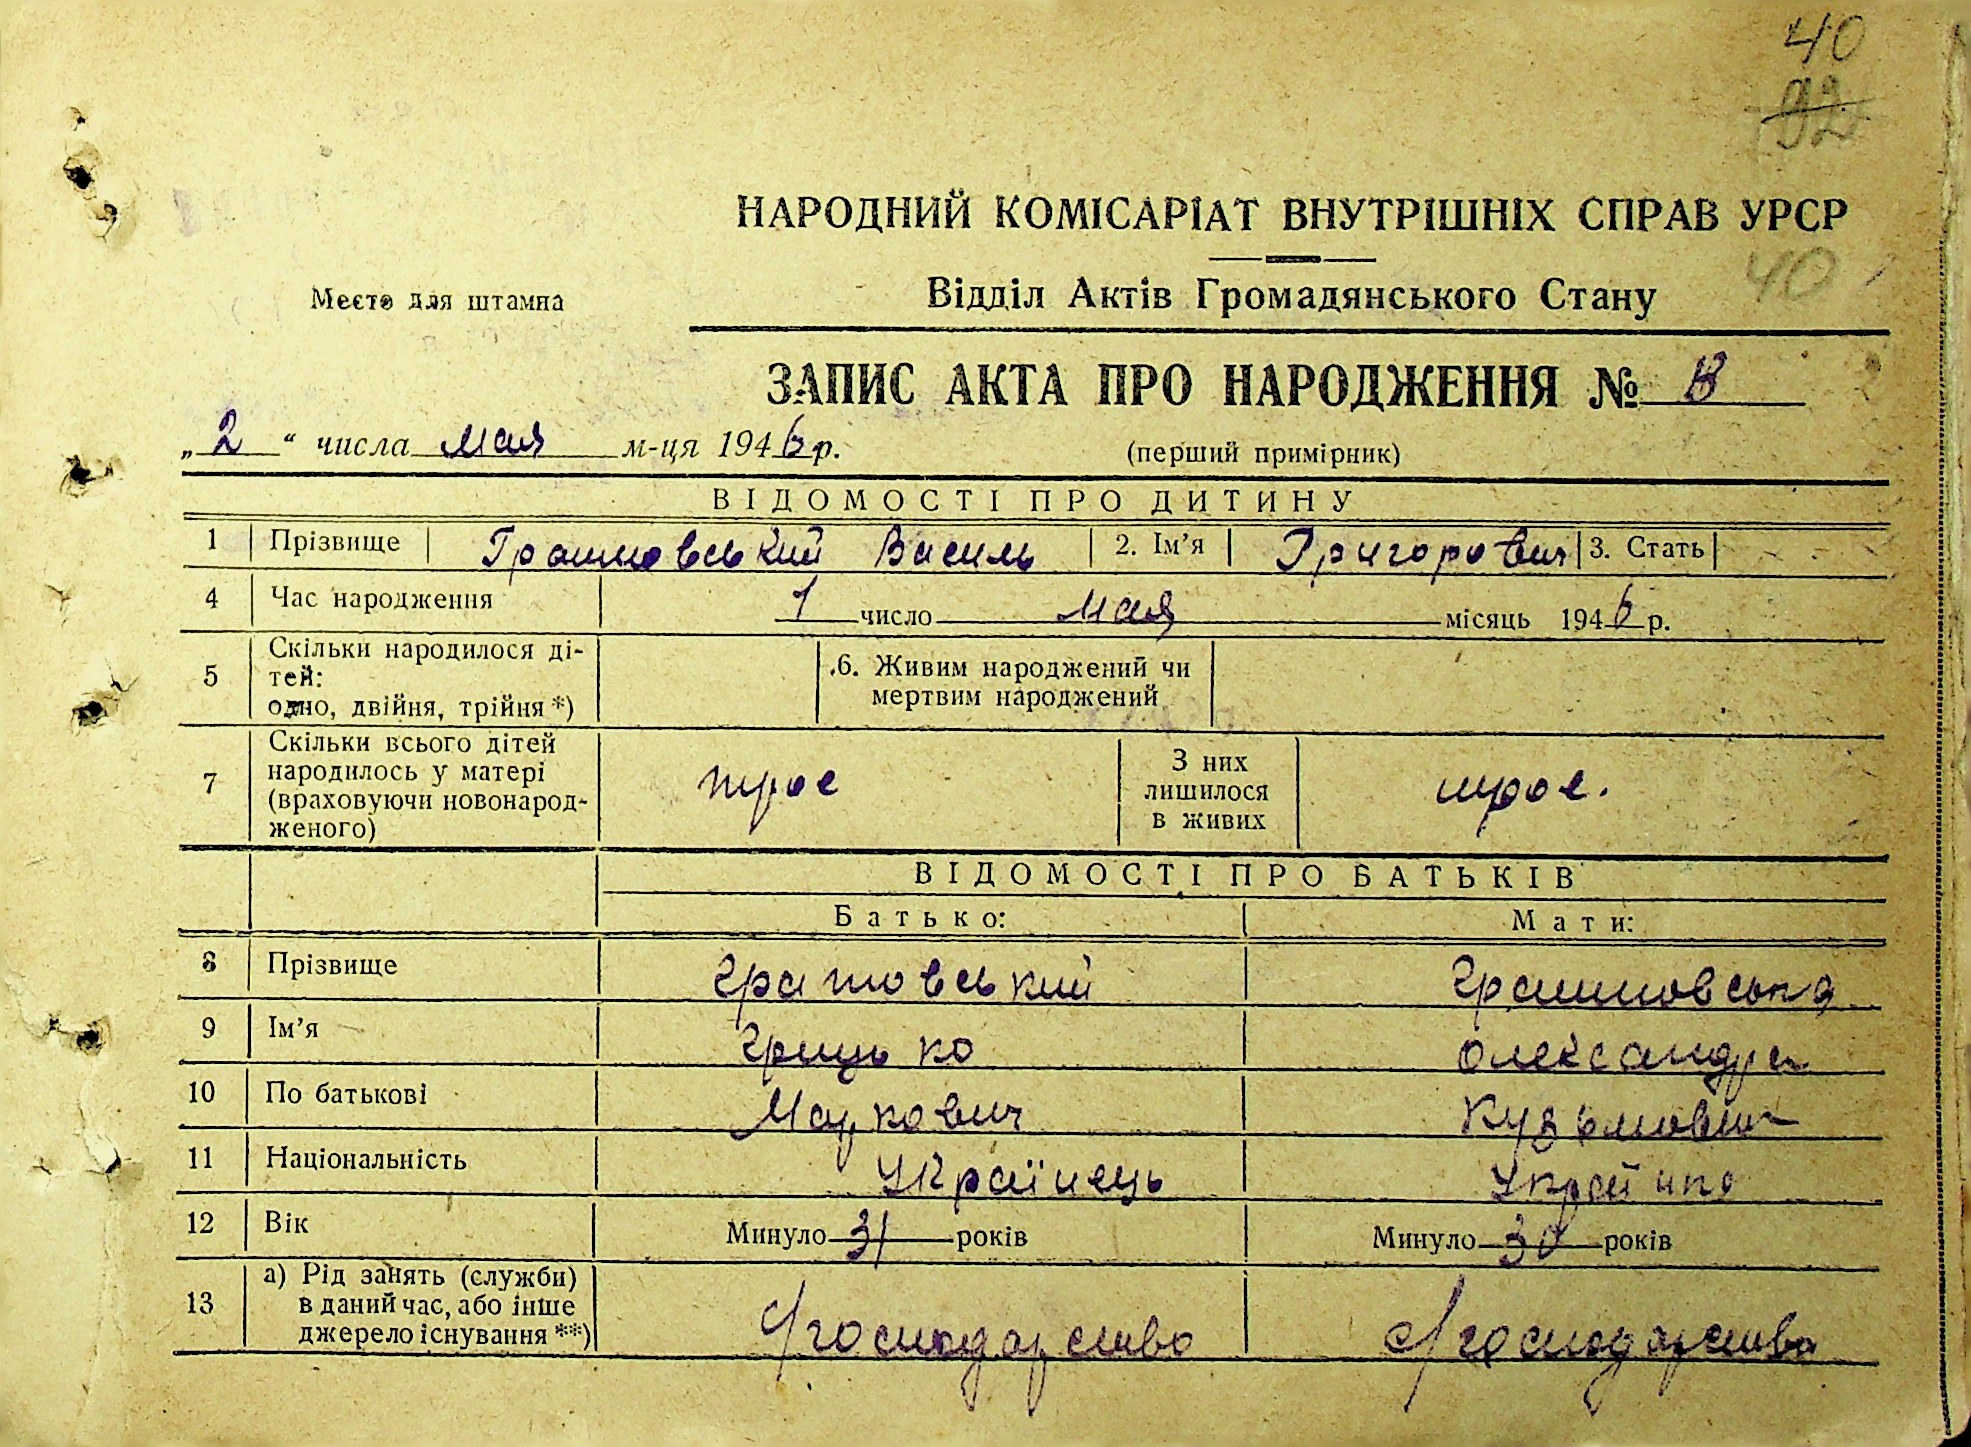 40
92
НАРОДНИЙ КОМІСАРІАТ ВНУТРІШНІХ СПРАВ УРСР
Место для штампа
Відділ Актів Громадянського Стану
40
ЗАПИС АКТА ПРО НАРОДЖЕННЯ №
„2“ числа мая м-ця 1946 р.
(перший примірник)
ВІДОМОСТІ ПРО ДИТИНУ
1 Прізвище Грамовський Василь 2. Ім’я Григорович 3. Стать
4 Час народження 1 число мая місяць 1946 р.
5 Скільки народилося ді-
тей:
одно, двійня, трійня *)
6. Живим народжений чи
мертвим народжений
7 Скільки всього дітей
народилось у матері
(враховуючи новонарод-
женого)
трое
З них
лишилося
в живих
трое.
ВІДОМОСТІ ПРО БАТЬКІВ
Батько: Мати:
8 Прізвище
9 Ім’я Грицько Олександра
10 По батькові Маркович
11 Національність Українець Українка
12 Вік Минуло 31 років Минуло 30 років
13 а) Рід занять (служби)
в даний час, або інше
джерело існування **)
С/господарство С/господарство